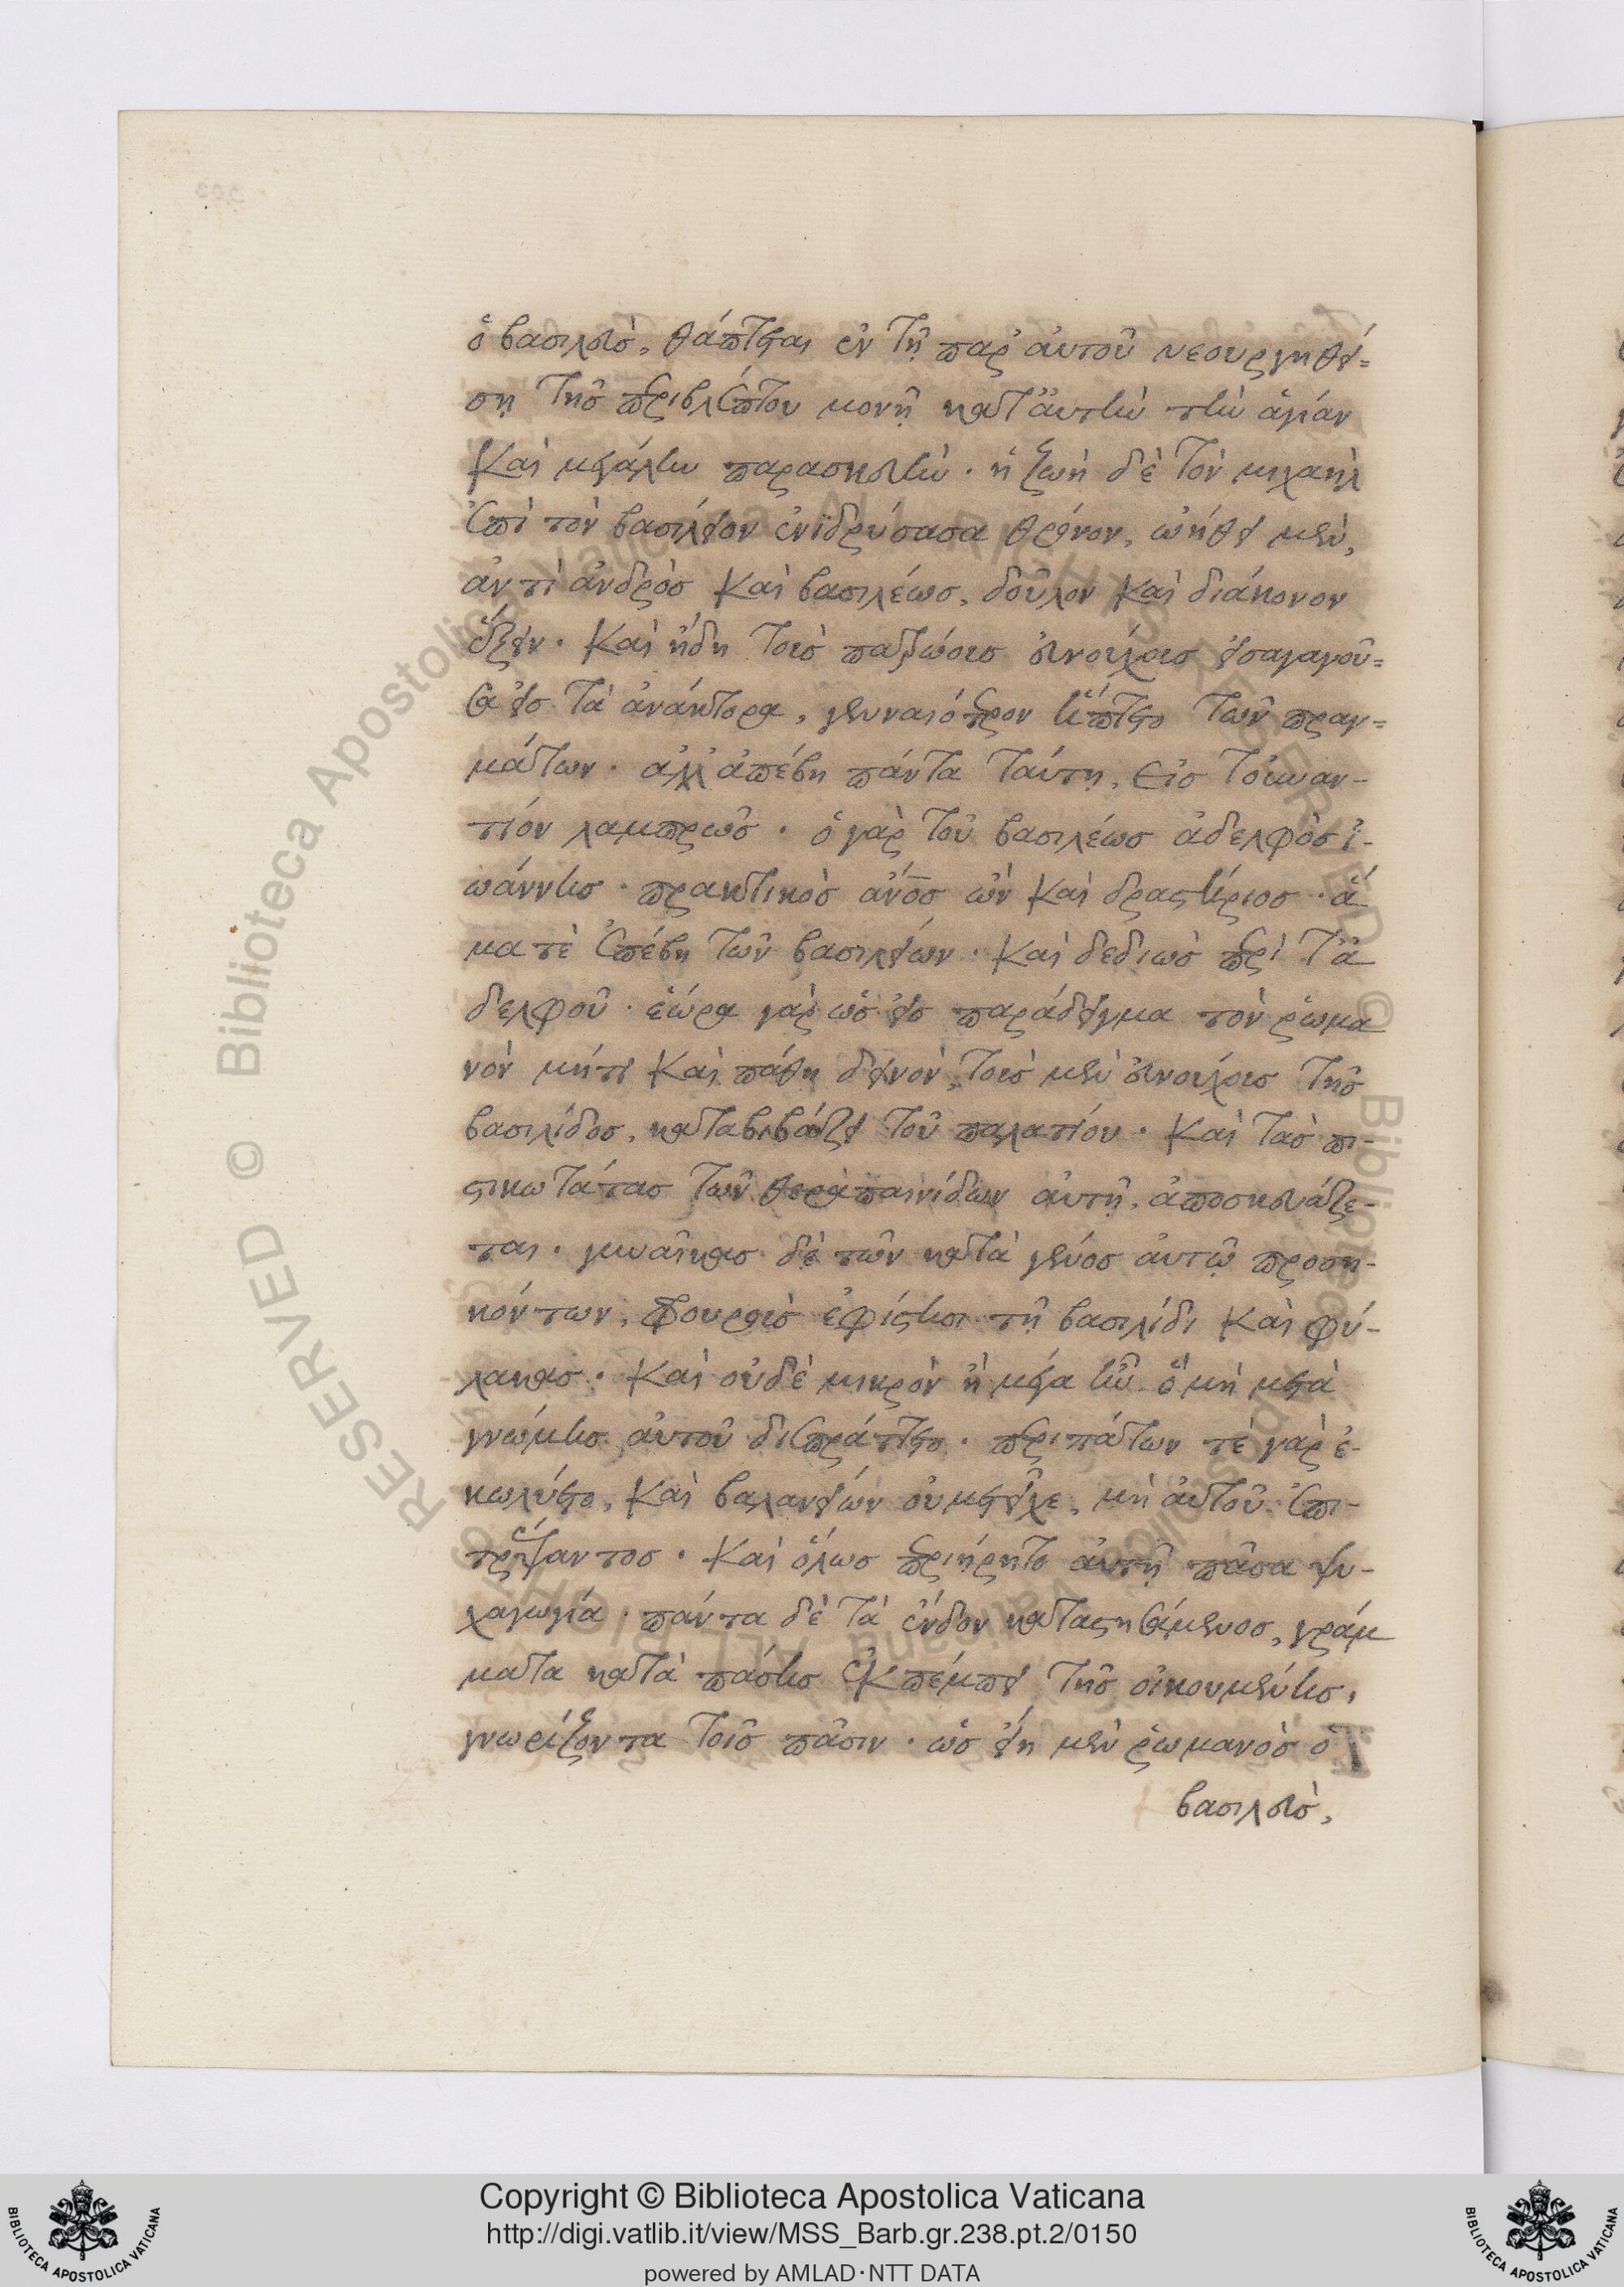 ὁ βασιλεὺσ, θάπτεται ἐν τῇ παρ' ἀυτοῦ νεουργηθεί=
σῃ τῆσ περιβλέπτου μονῇ κατ' ἀυτὴν τὴν ἁγίαν
Καὶ μεγάλην παρασκευὴν · ἡ ζωὴ δὲ τὸν μιχαὴλ
ἐπὶ τὸν βασίλειον ἐνϊδρύσασα θρόνον, ὠήθει μὲν,
ἀντὶ ἀνδρὸσ Καὶ βασιλέωσ, δοῦλον Καὶ διάκονον
ἕξειν · Καὶ ἤδη τοὺσ πατρώουσ εὐνούχουσ εἰσαγαγοῦ=
σα εἰσ τὰ ἀνάκτορα, γενναιότερον ἥπτετο τῶν πραγ=
μάτων · ἀλλ' ἀπέβη πάντα ταύτῃ, εἰσ τοὐναν-
τίον λαμπρῶσ · ὁ γὰρ τοῦ βασιλέωσ ἀδελφὸσ ἰ-
ωάννησ · πρακτικὸσ ἄνοσ ὢν Καὶ δραστήριοσ · ἅ-
μα τὲ ἐπέβη τῶν βασιλείων · Καὶ δεδιὼσ περὶ τἀ-
δελφοῦ · ἑώρα γὰρ ὡσ εἰσ παράδειγμα τὸν ῥωμα
νὸν μήτι Καὶ πάθῃ δεινὸν, τοὺσ μὲν εὐνούχουσ τῆσ
βασιλίδοσ, καταβιβάζει τοῦ παλατίου · Καὶ τὰσ πι-
στικωτάτασ τῶν θεραπαινίδων ἀυτῇ, ἀποσκευάζε-
ται · γυναῖκασ δὲ τῶν κατὰ γένοσ ἀυτῷ προση-
κόντων, φρουροὺσ ἐφίστησι τῇ βασιλίδι Καὶ φύ-
λακασ · Καὶ οὐδὲ μικρὸν ἢ μέγα ἦν ὃ μὴ μετὰ
γνώμησ ἀυτοῦ διεπράττετο · περιπάτων τὲ γὰρ ἐ-
κωλύετο, Καὶ βαλανείων οὐ μετεῖχε, μὴ ἀυτοῦ ἐπι-
τρέψαντοσ · Καὶ ὅλωσ περιῄρητο ἀυτῇ πᾶσα ψυ-
χαγωγία · πάντα δὲ τὰ ἔνδον καταστησάμενοσ, γράμ
ματα κατὰ πάσησ ἐκπέμπει τῆσ οἰκουμένησ,
γνωρίζοντα τοῖσ πᾶσιν · ὡσ εἴη μὲν ῥωμανὸσ ὁ
βασιλεὺσ,
Copyright © Biblioteca Apostolica Vaticana
http://digi.vatlib.it/view/MSS_Barb.gr.238.pt.2/0150
powered by AMLAD·NTT DATA